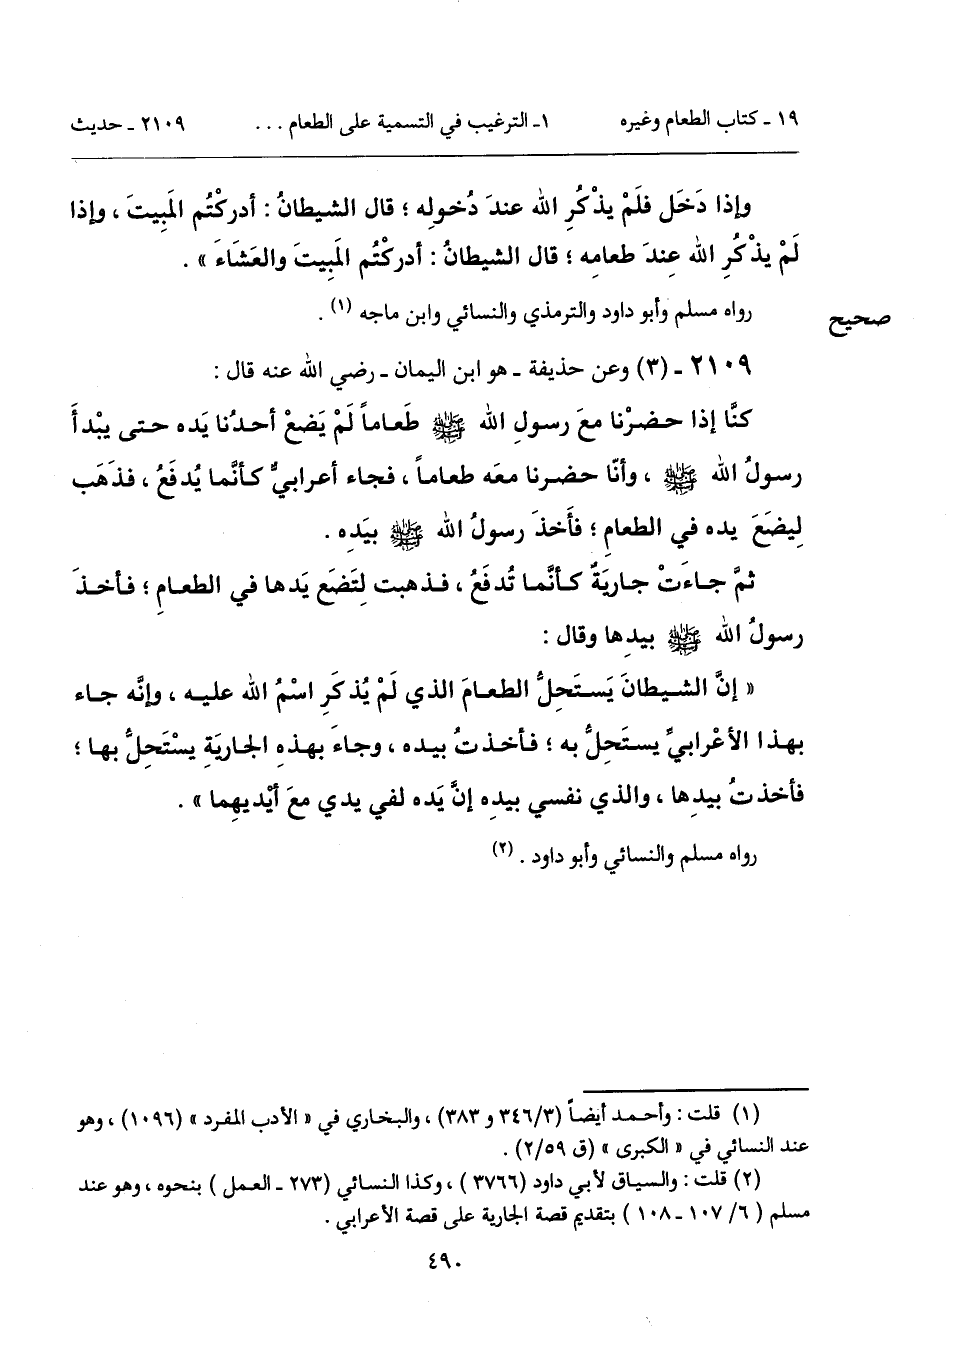 ١٩ ـ كتاب الطعام وغيره ١ـ الترغيب في التسمية على الطعام ... ٢١٠٩ ـ حديث
وإذا دَخَل فلَمْ يذْكُرِ الله عندَ دُخولِه ؛ قال الشيطانُ : أدركْتُم المَبِيتَ ، وإذا
لَمْ يذْكُرِ الله عِندَ طعامِه ؛ قال الشيطانُ : أدركْتُم المَبِيتَ والعَشَاءَ » .
رواه مسلم وأبو داود والترمذي والنسائي وابن ماجه (١) .
صحيح
٢١٠٩ ـ (٣) وعن حذيفة ـ هو ابن اليمان ـ رضي الله عنه قال :
كنَّا إذا حضرْنا معَ رسولِ الله ﷺ طَعاماً لَمْ يَضعْ أحدُنا يَده حتى يبْدأَ
رسولُ الله ﷺ ، وأنّا حضرنا معَه طعاماً ، فجاء أعرابيٌّ كأنَّما يُدفَعُ ، فذهَب
لِيضَعَ يده في الطعامِ ؛ فأَخذَ رسولُ الله ﷺ بيَدِه .
ثمَّ جاءَتْ جاريَةٌ كأنَّما تُدفَعُ ، فذهبت لِتَضَع يَدها في الطعامِ ؛ فأخذَ
رسولُ الله ﷺ بيدِها وقال :
« إنَّ الشيطانَ يَستَحِلُّ الطعامَ الذي لَمْ يُذكَرِ اسْمُ الله عليه ، وإنَّه جاء
بهذا الأعْرابيِّ يستَحِلُّ به ؛ فأخذتُ بيده ، وجاءَ بهذه الجاريَةِ يسْتَحِلُّ بها ؛
فأخذتُ بيدِها ، والذي نفسي بيدِه إنَّ يَده لفي يدي معَ أيْديهِما » .
رواه مسلم والنسائي وأبو داود . (٢)
(١) قلت : وأحمد أيضاً (٣٤٦/٣ و ٣٨٣) ، والبخاري في « الأدب المفرد » (١٠٩٦) ، وهو
عند النسائي في « الكبرى » (ق ٢/٥٩) .
(٢) قلت : والسياق لأبي داود (٣٧٦٦ ) ، وكذا النسائي (٢٧٣ ـ العمل ) بنحوه ، وهو عند
مسلم ( ٦/ ١٠٧ ـ ١٠٨ ) بتقديم قصة الجارية على قصة الأعرابي .
٤٩٠